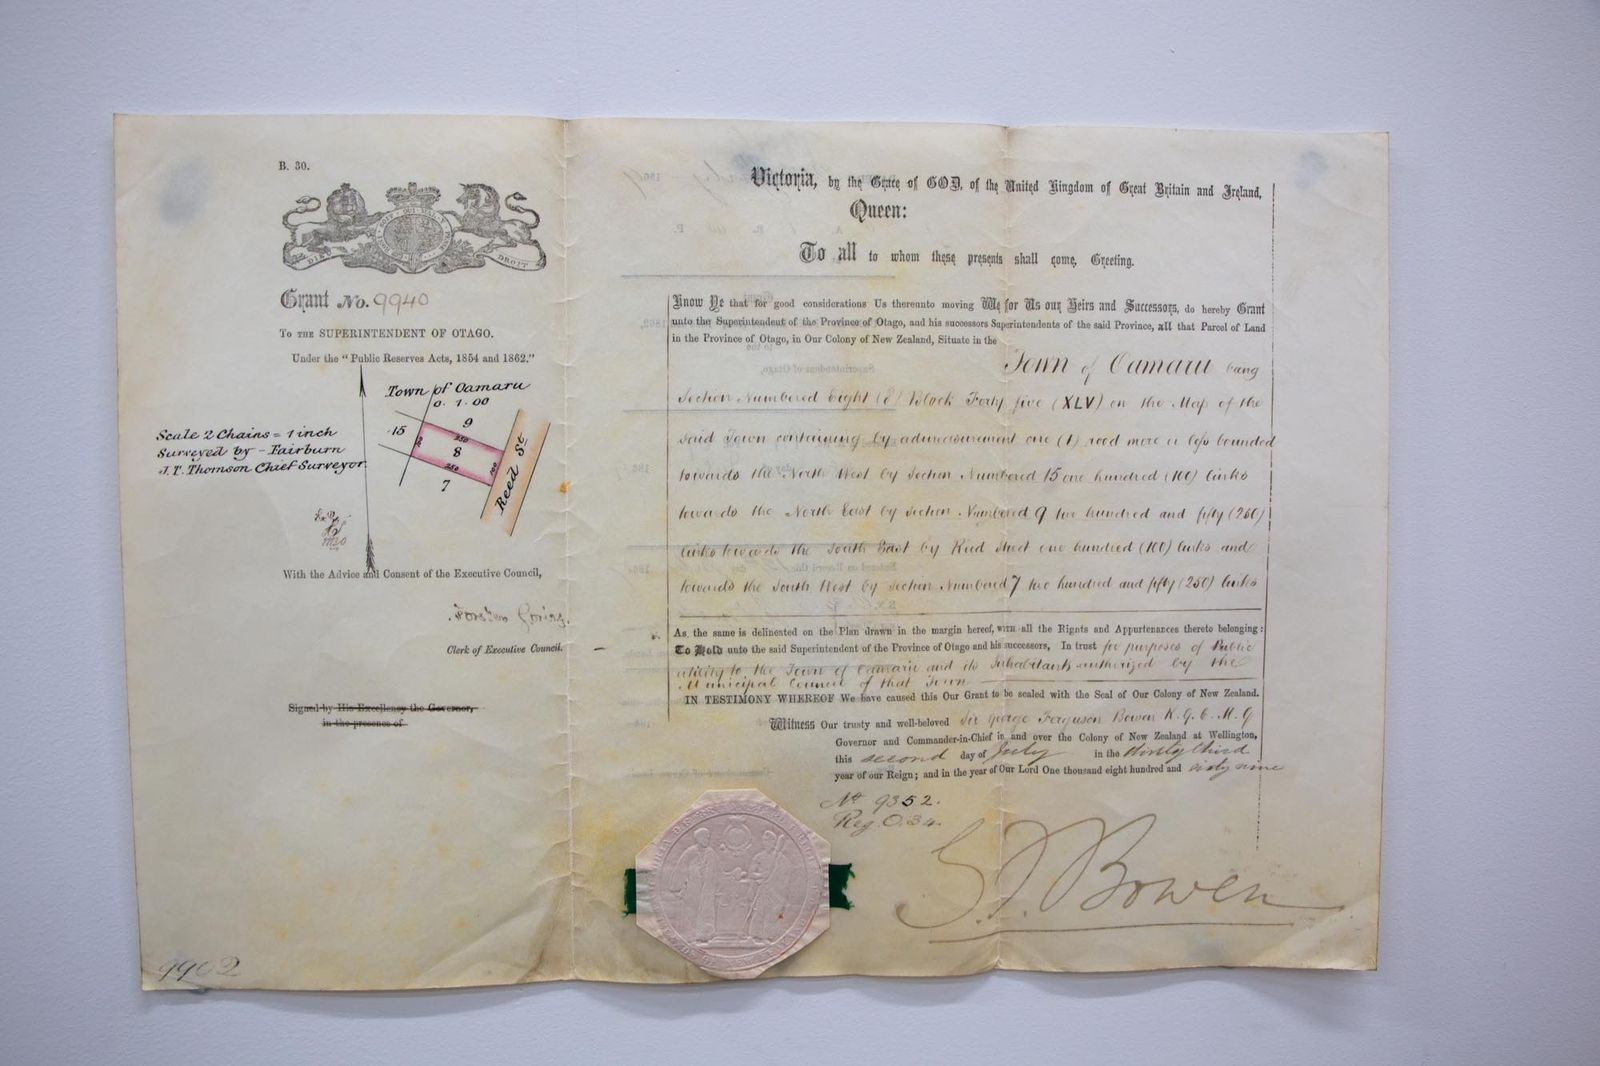 B. 30.
DIEU ET MON DROIT
Grant No. 9940
To the SUPERINTENDENT OF OTAGO.
Under the "Public Reserves Acts, 1854 and 1862."
Town of Oamaru
0. 1. 00
Scale 2 Chains = 1 inch
Surveyed by - Fairburn
J. T. Thomson Chief Surveyor
15
9
250
100
8
100
250
7
Reed St
With the Advice and Consent of the Executive Council,
Forster Goring.
Clerk of Executive Council.
Signed by His Excellency the Governor,
in the presence of
9902
Victoria, by the Grace of GOD, of the United Kingdom of Great Britain and Ireland,
Queen:
To all to whom these presents shall come, Greeting.
Know Ye that for good considerations Us thereunto moving We for Us our Heirs and Successors, do hereby Grant
unto the Superintendent of the Province of Otago, and his successors Superintendents of the said Province, all that Parcel of Land
in the Province of Otago, in Our Colony of New Zealand, Situate in the
Town of Oamaru being
Section Numbered Eight (8) Block Forty five (XLV) on the Map of the
said Town containing by admeasurement one (1) rood more or less bounded
towards the North West by Section Numbered 15 one hundred (100) links
towards the North East by Section Numbered 9 two hundred and fifty (250)
links towards the South East by Reed Street one hundred (100) links and
towards the South West by Section Numbered 7 two hundred and fifty (250) links
As the same is delineated on the Plan drawn in the margin hereof, with all the Rights and Appurtenances thereto belonging:
To Hold unto the said Superintendent of the Province of Otago and his successors, In trust for purposes of Public
utility to the Town of Oamaru and its Inhabitants authorized by the
Municipal Council of that Town
IN TESTIMONY WHEREOF We have caused this Our Grant to be sealed with the Seal of Our Colony of New Zealand.
Witness Our trusty and well-beloved Sir George Ferguson Bowen K. G. C. M. G
Governor and Commander-in-Chief in and over the Colony of New Zealand at Wellington,
this second day of July in the thirty third
year of our Reign; and in the year of Our Lord One thousand eight hundred and sixty nine
No 9352.
Reg. O. 34.
G. F. Bowen